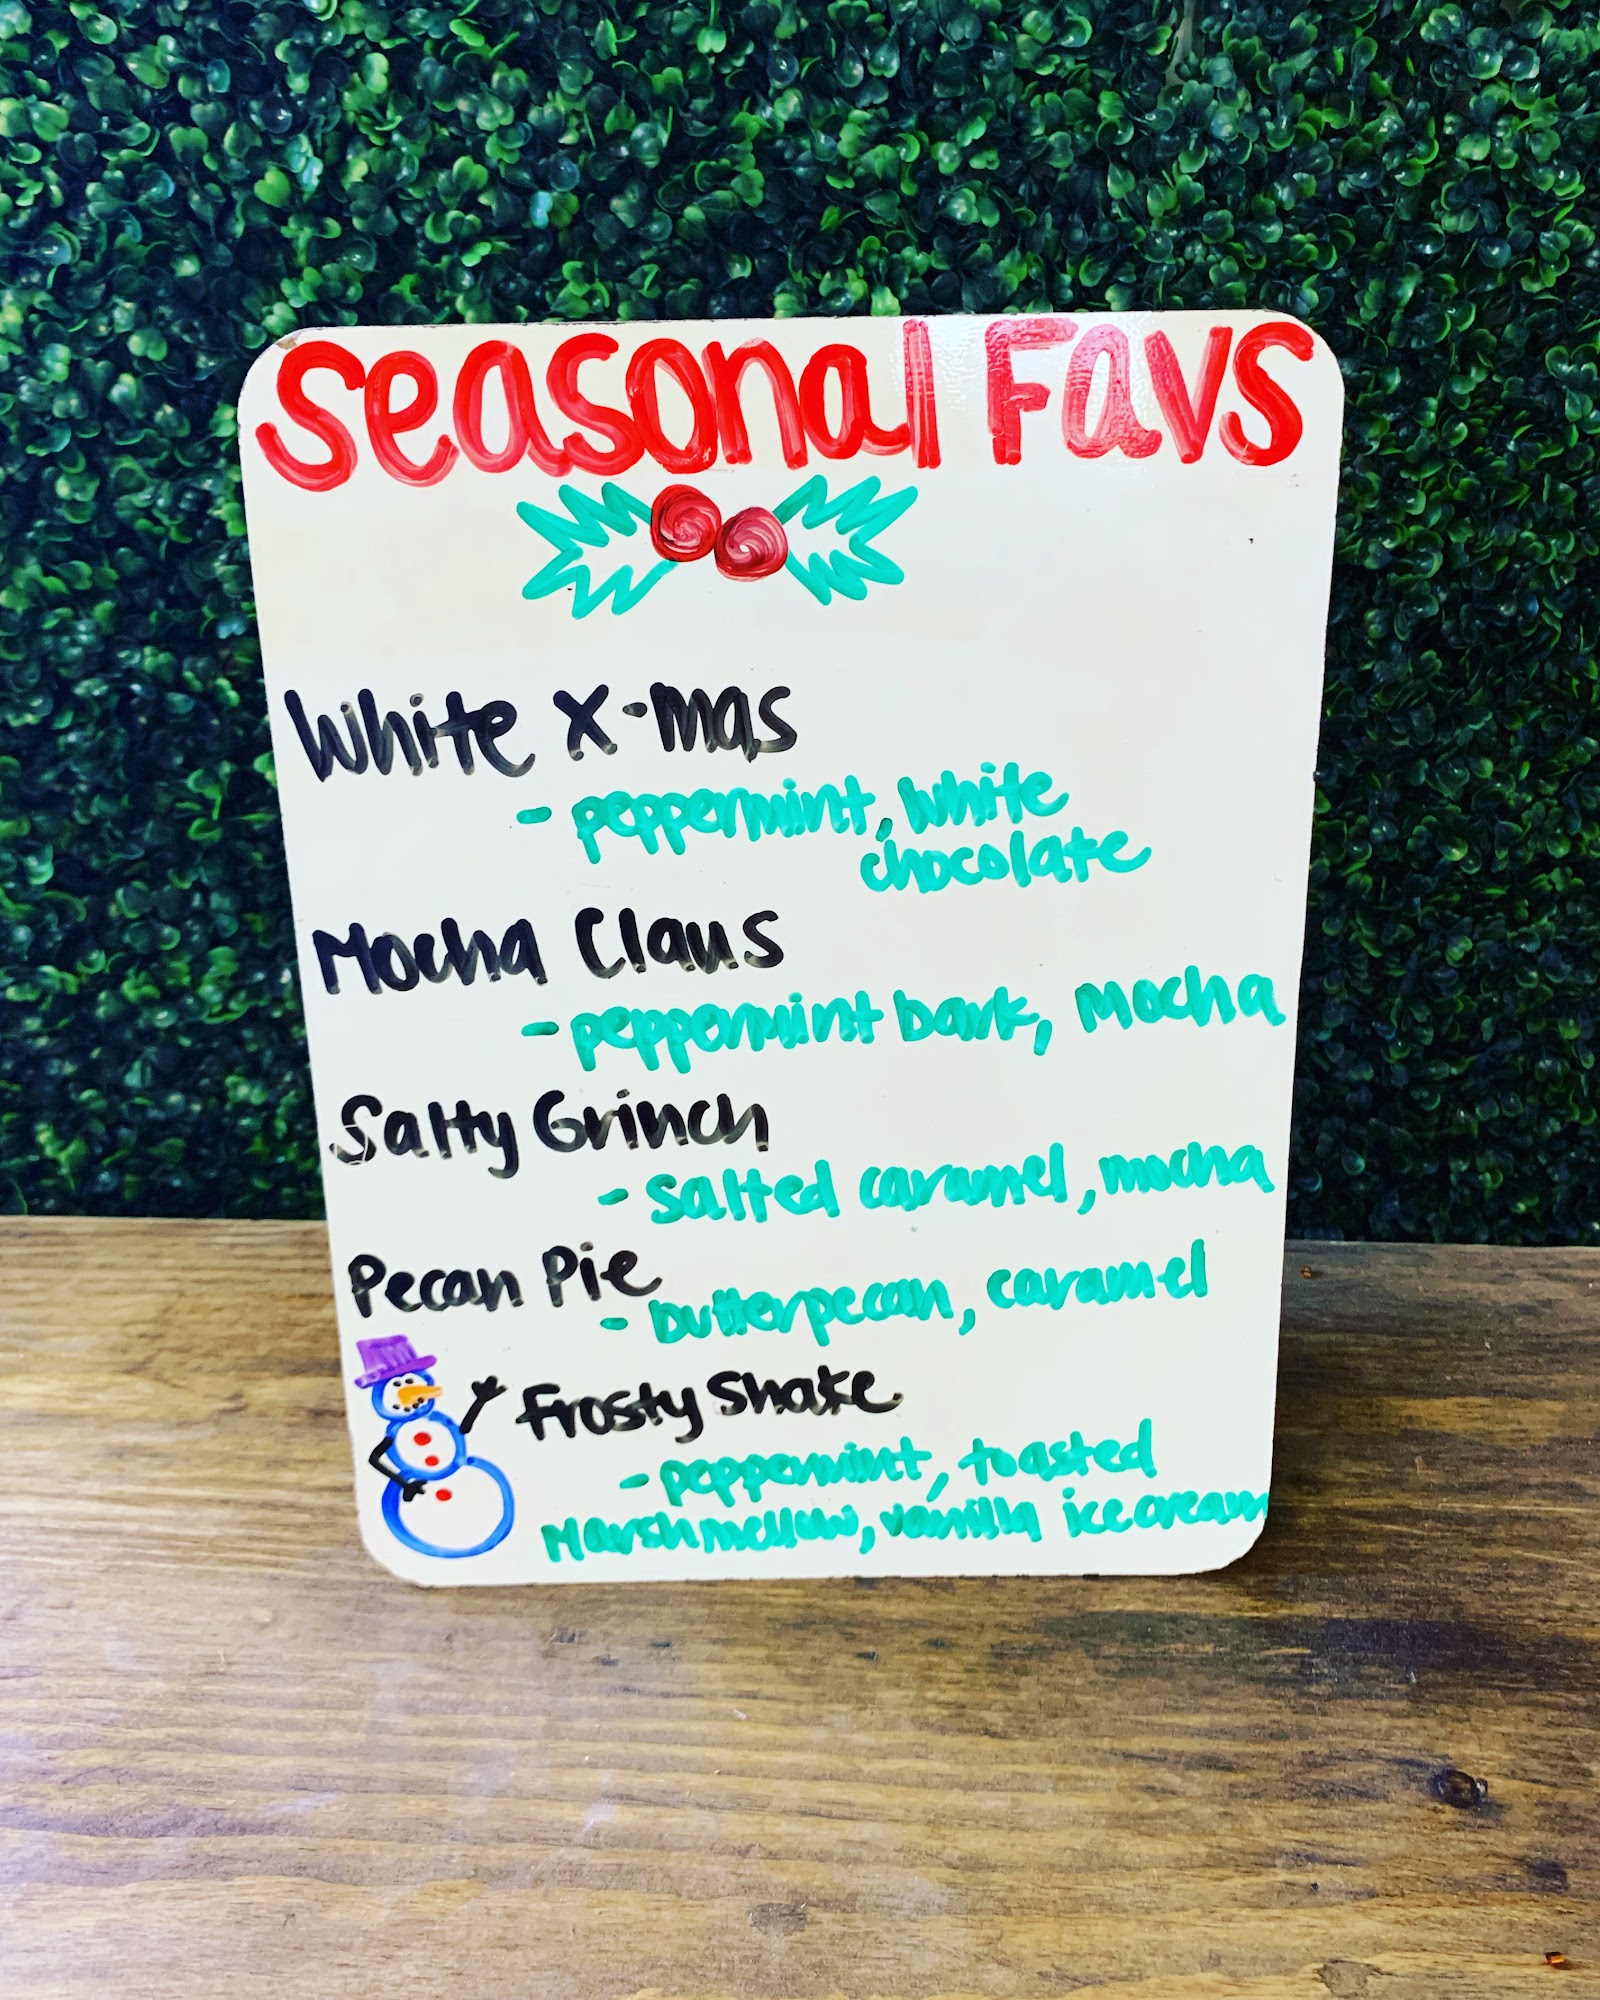 Seasonal Favs
White X-mas
- peppermint, white
chocolate
Mocha Claus
- peppermint bark, Mocha
Salty Grinch
- salted caramel, mocha
Pecan Pie
- butterpecan, caramel
Frosty Shake
- peppermint, toasted
Marshmellow, vanilla ice cream